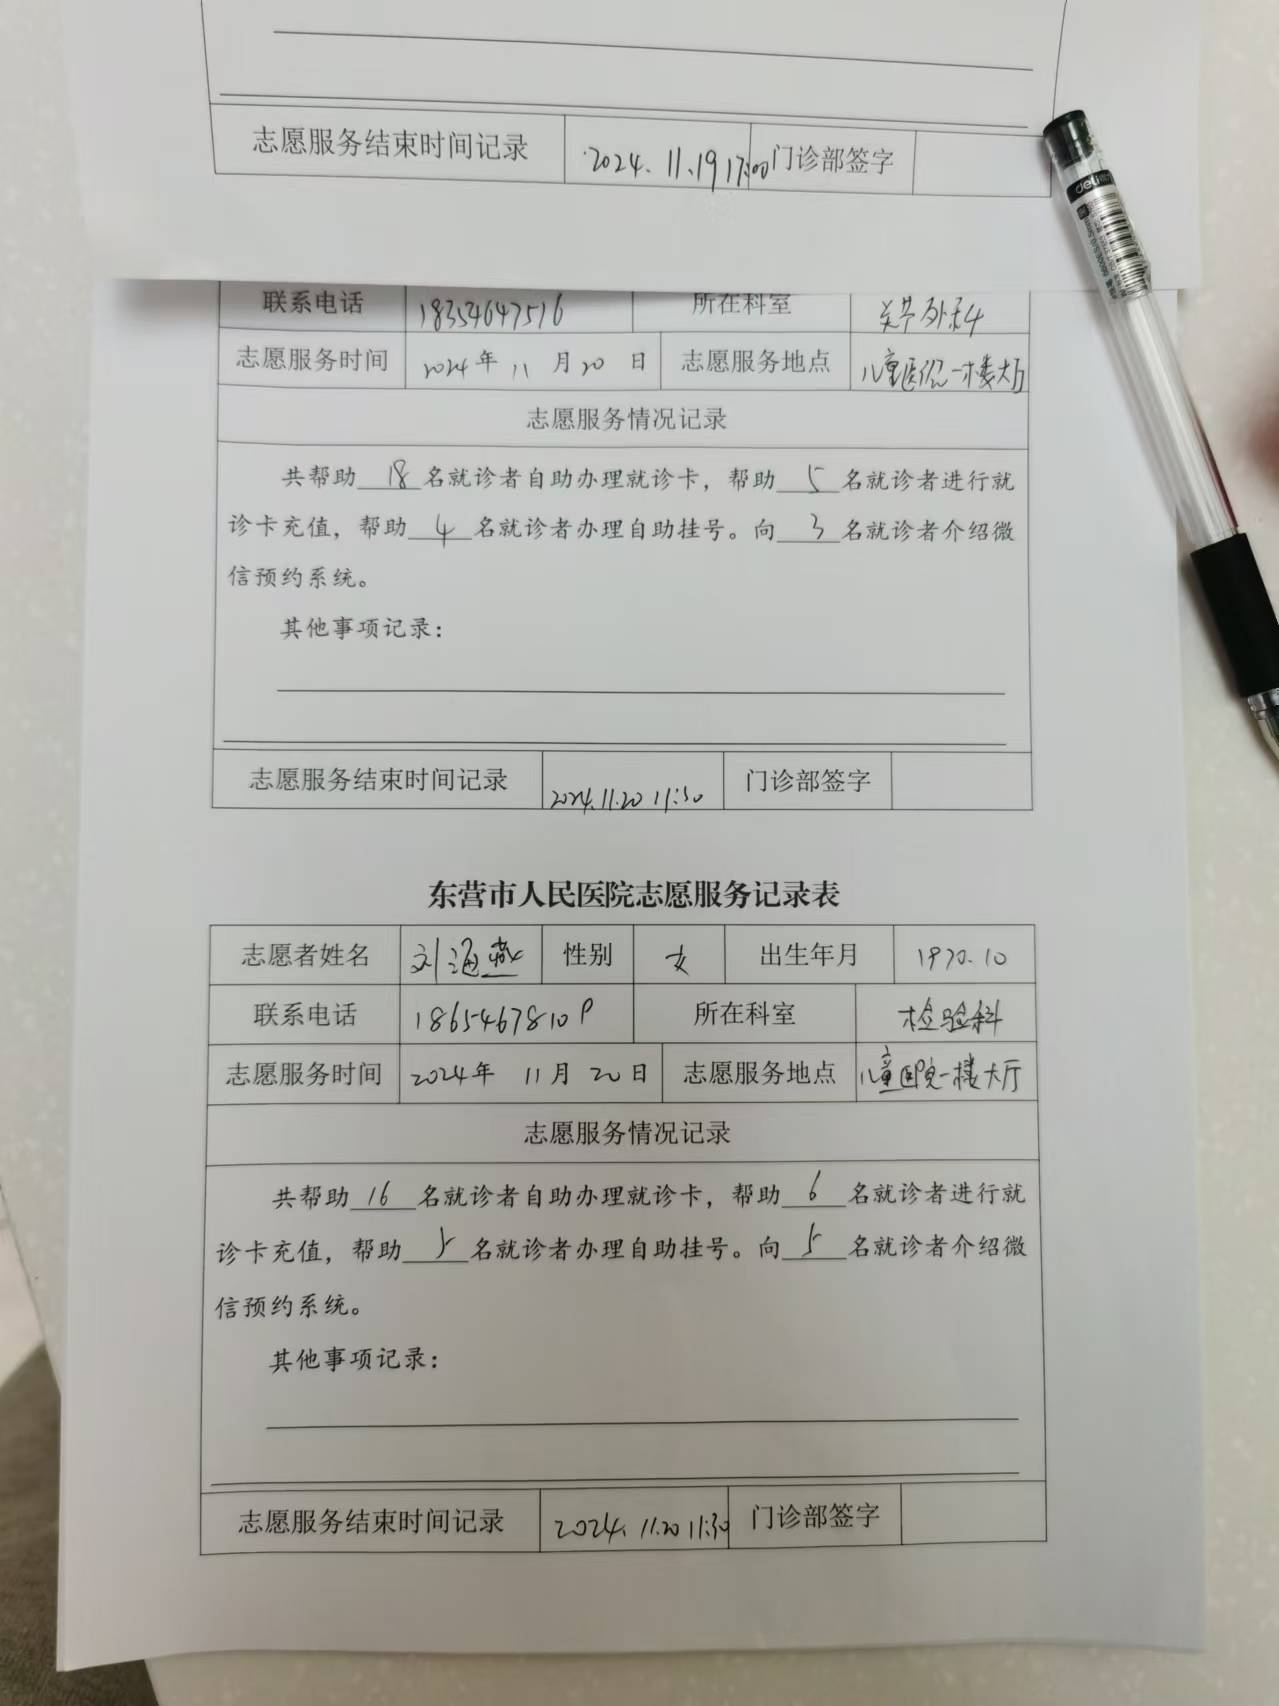 志愿服务结束时间记录 2024.11.19 17:00 门诊部签字
deli
联系电话 18354647516 所在科室 关节外科
志愿服务时间 2024年 11月 20日 志愿服务地点 儿童医院一楼大厅
志愿服务情况记录
共帮助 18 名就诊者自助办理就诊卡，帮助 5 名就诊者进行就
诊卡充值，帮助 4 名就诊者办理自助挂号。向 3 名就诊者介绍微
信预约系统。
其他事项记录：
志愿服务结束时间记录 2024.11.20 11:30 门诊部签字
东营市人民医院志愿服务记录表
志愿者姓名 刘海燕 性别 女 出生年月 1970.10
联系电话 所在科室 检验科
志愿服务时间 2024年 11月 20日 志愿服务地点 儿童医院一楼大厅
志愿服务情况记录
共帮助 16 名就诊者自助办理就诊卡，帮助 6 名就诊者进行就
诊卡充值，帮助 5 名就诊者办理自助挂号。向 5 名就诊者介绍微
信预约系统。
其他事项记录：
志愿服务结束时间记录 2024.11.20 11:30 门诊部签字